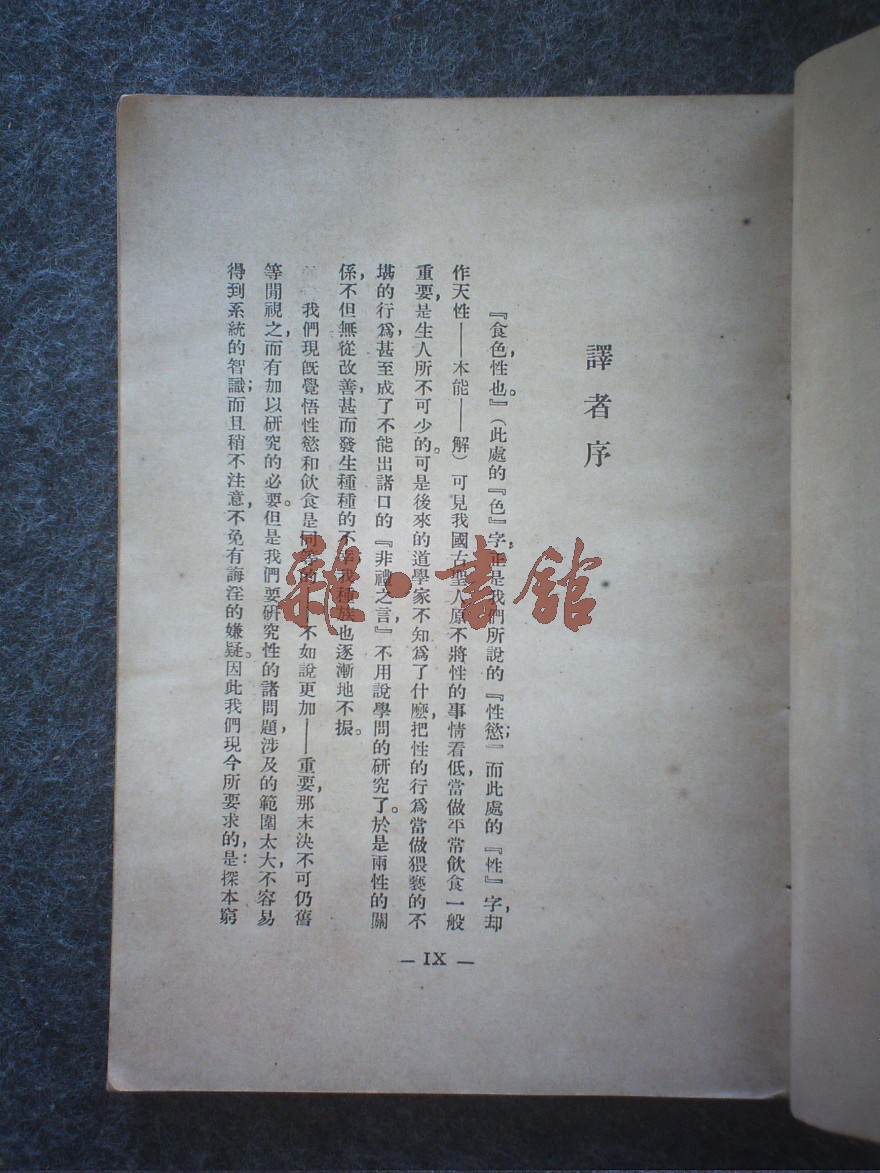 譯者序
『食色，性也。』（此處的『色』字，正是我們所說的『性慾；』而此處的『性』字，却
作天性——本能——解）可見我國古聖人原不將性的事情看低，當做平常飲食一般
重要，是生人所不可少的。可是後來的道學家不知爲了什麽，把性的行爲當做猥褻的不
堪的行爲，甚至成了不能出諸口的『非禮之言，』不用說學問的研究了。於是兩性的關
係，不但無從改善，甚而發生種種的不幸，我種族也逐漸地不振。
我們現旣覺悟性慾和飲食是同等的——不如說更加——重要，那末決不可仍舊
等閒視之，而有加以研究的必要。但是我們要研究性的諸問題，涉及的範圍太大，不容易
得到系統的智識；而且稍不注意，不免有誨淫的嫌疑。因此我們現今所要求的，是：探本窮
— IX —
雜·書館